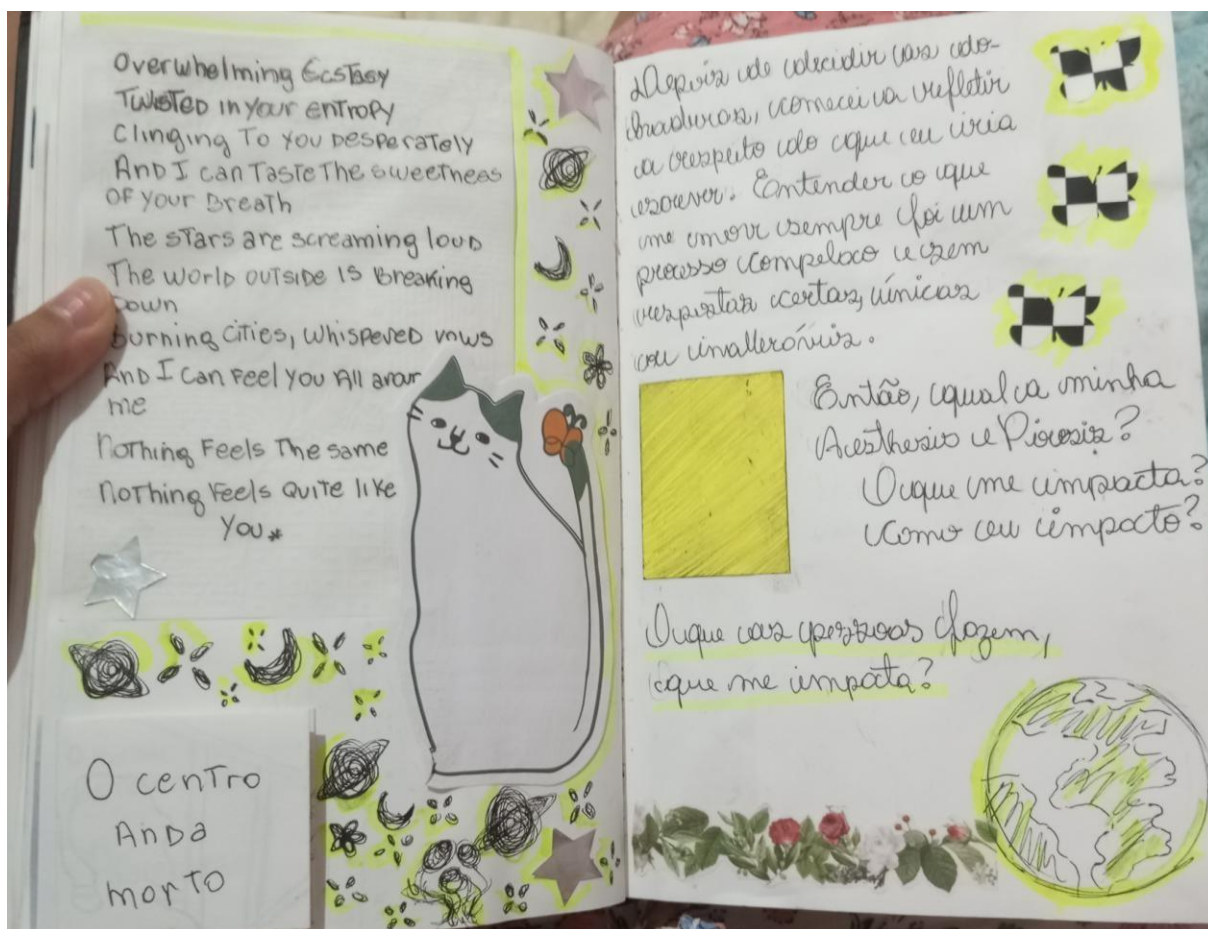 Overwhelming Ecstasy
Twisted in your entropy
Clinging To you Desperately
And I can Taste The sweetness
of your Breath
The stars are screaming loud
The world outside is Breaking
Down
Burning cities, whispered vows
And I can Feel you All aroun
me
Nothing Feels The same
Nothing Feels Quite like
you*
O centro
Anda
morto
Depois de decidir as do-
braduras, comecei a refletir
a respeito do que eu iria
escrever. Entender o que
me move sempre foi um
processo e sem
respostas certas, únicas
ou
Então, qual a minha
Aesthesis e Piresis?
O que me impacta?
Como eu impacto?
O que as pessoas fazem,
que me impacta?